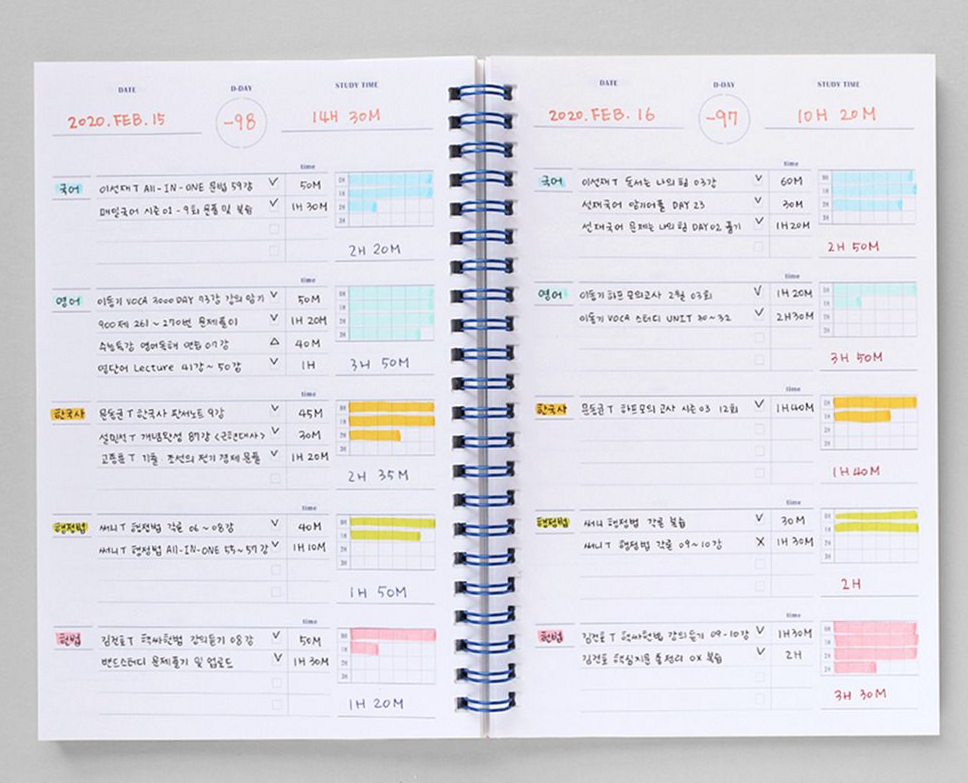 DATE D-DAY STUDY TIME
2020.FEB.15 -98 14H 30M
time
국어 이선재T All-IN-ONE 문법 59강 V 50M
매일국어 시즌01-9회 문풀 및 복습 V 1H 30M
2H 20M
time
영어 이동기 VOCA 3000 DAY 93강 강의 암기 V 50M
900제 261~270번 문제풀이 V 1H 20M
수능특강 영어독해 연습 07강 △ 40M
영단어 Lecture 41강~50강 V 1H
3H 50M
time
한국사 문동균T 한국사 판서노트 9강 V 45M
설민석T 개념완성 87강 <근현대사> V 30M
고종훈T 기출·조선의 전기 경제 문풀 V 1H 20M
2H 35M
time
행정법 써니T 행정법 각론 06~08강 V 40M
써니T 행정법 All-IN-ONE 55~57강 V 1H 10M
1H 50M
time
헌법 김건호T 핵싸헌법 강의듣기 08강 V 50M
밴드스터디 문제풀기 및 업로드 V 1H 30M
1H 20M
DATE D-DAY STUDY TIME
2020.FEB.16 -97 10H 20M
time
국어 이선재T 독서는 나의 힘 03강 V 60M
선재국어 암기어플 DAY 23 V 30M
선재국어 문제는 나의 힘 DAY 02 풀기 V 1H 20M
2H 50M
time
영어 이동기 하프모의고사 2월 03회 V 1H 20M
이동기 VOCA 스터디 UNIT 30~32 V 2H 30M
3H 50M
time
한국사 문동균T 하프모의고사 시즌03 12회 V 1H 40M
1H 40M
time
행정법 써니 행정법 각론 복습 V 30M
써니T 행정법 각론 09~10강 X 1H 30M
2H
time
헌법 김건호T 핵싸헌법 강의듣기 09-10강 V 1H 30M
김건호 핵심지문 총정리 OX 복습 V 2H
3H 30M